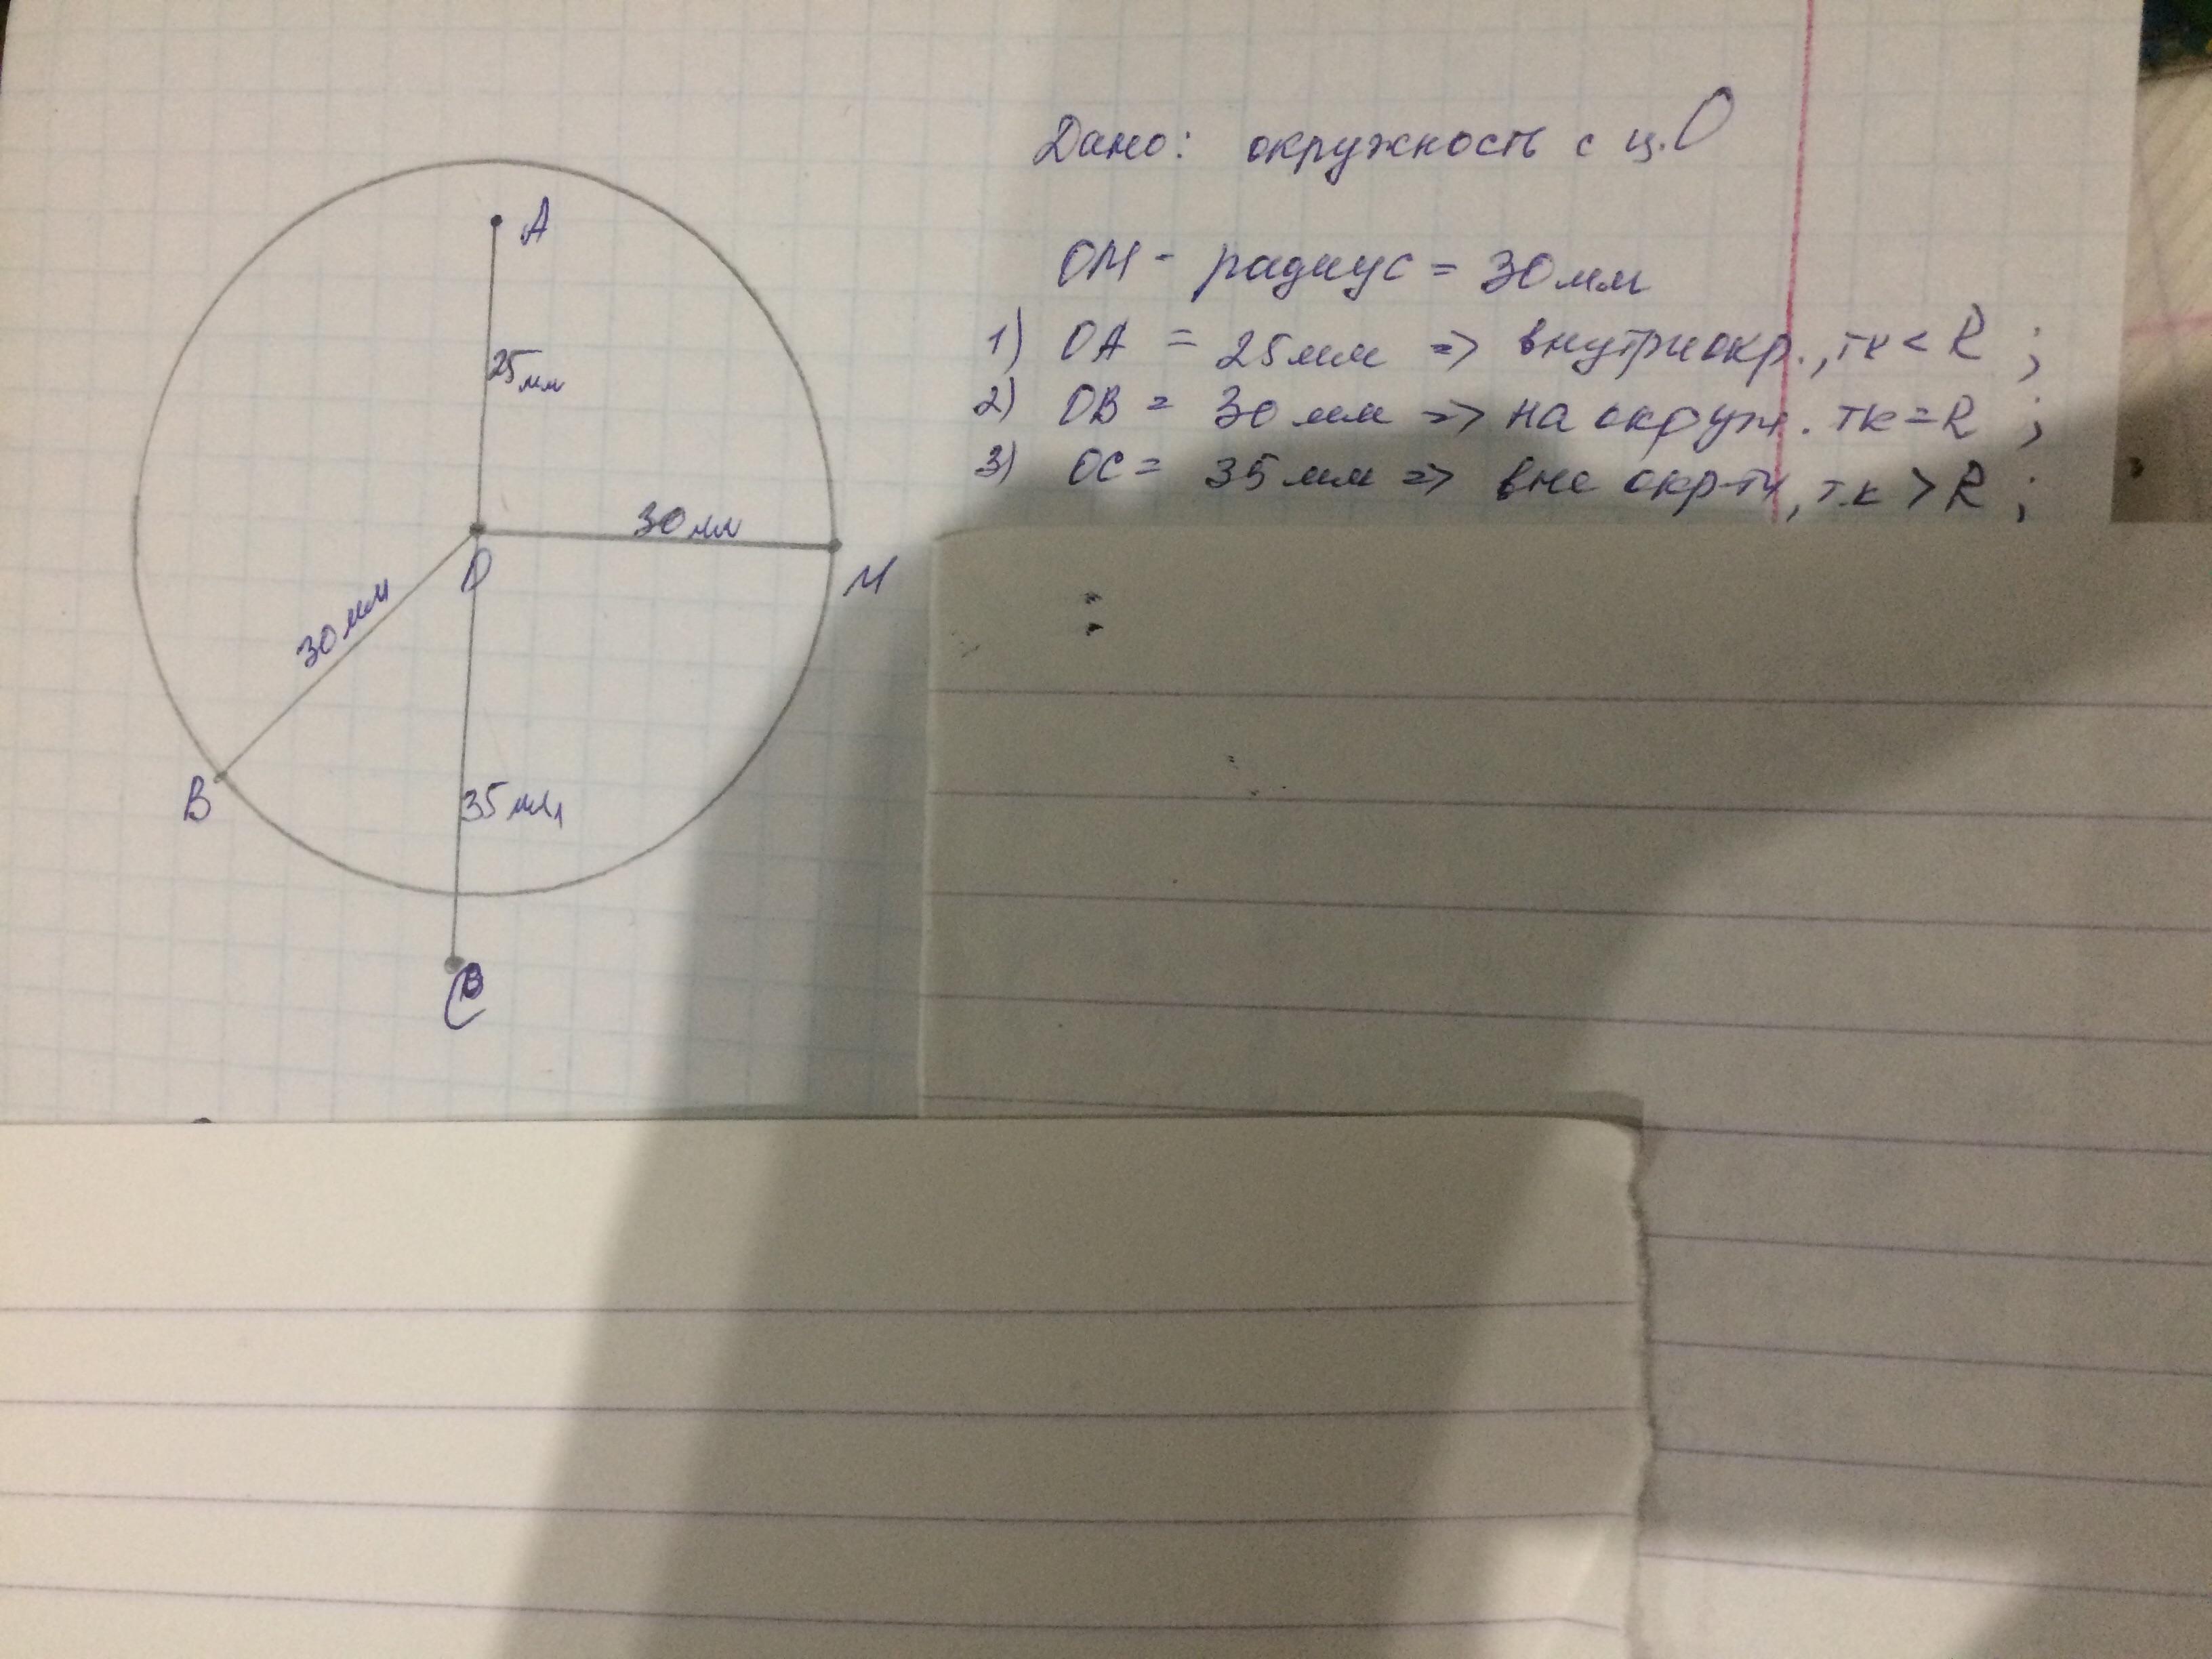 Дано: окружность с ц. О
ОМ - радиус = 30 мм
1) ОА = 25 мм => внутри окр., тк < R ;
2) ОВ = 30 мм => на окруж. тк = R ;
3) ОС = 35 мм => вне окр-ти, т.к > R ;
А
25 мм
30 мм
О
М
30 мм
В
35 мм
С